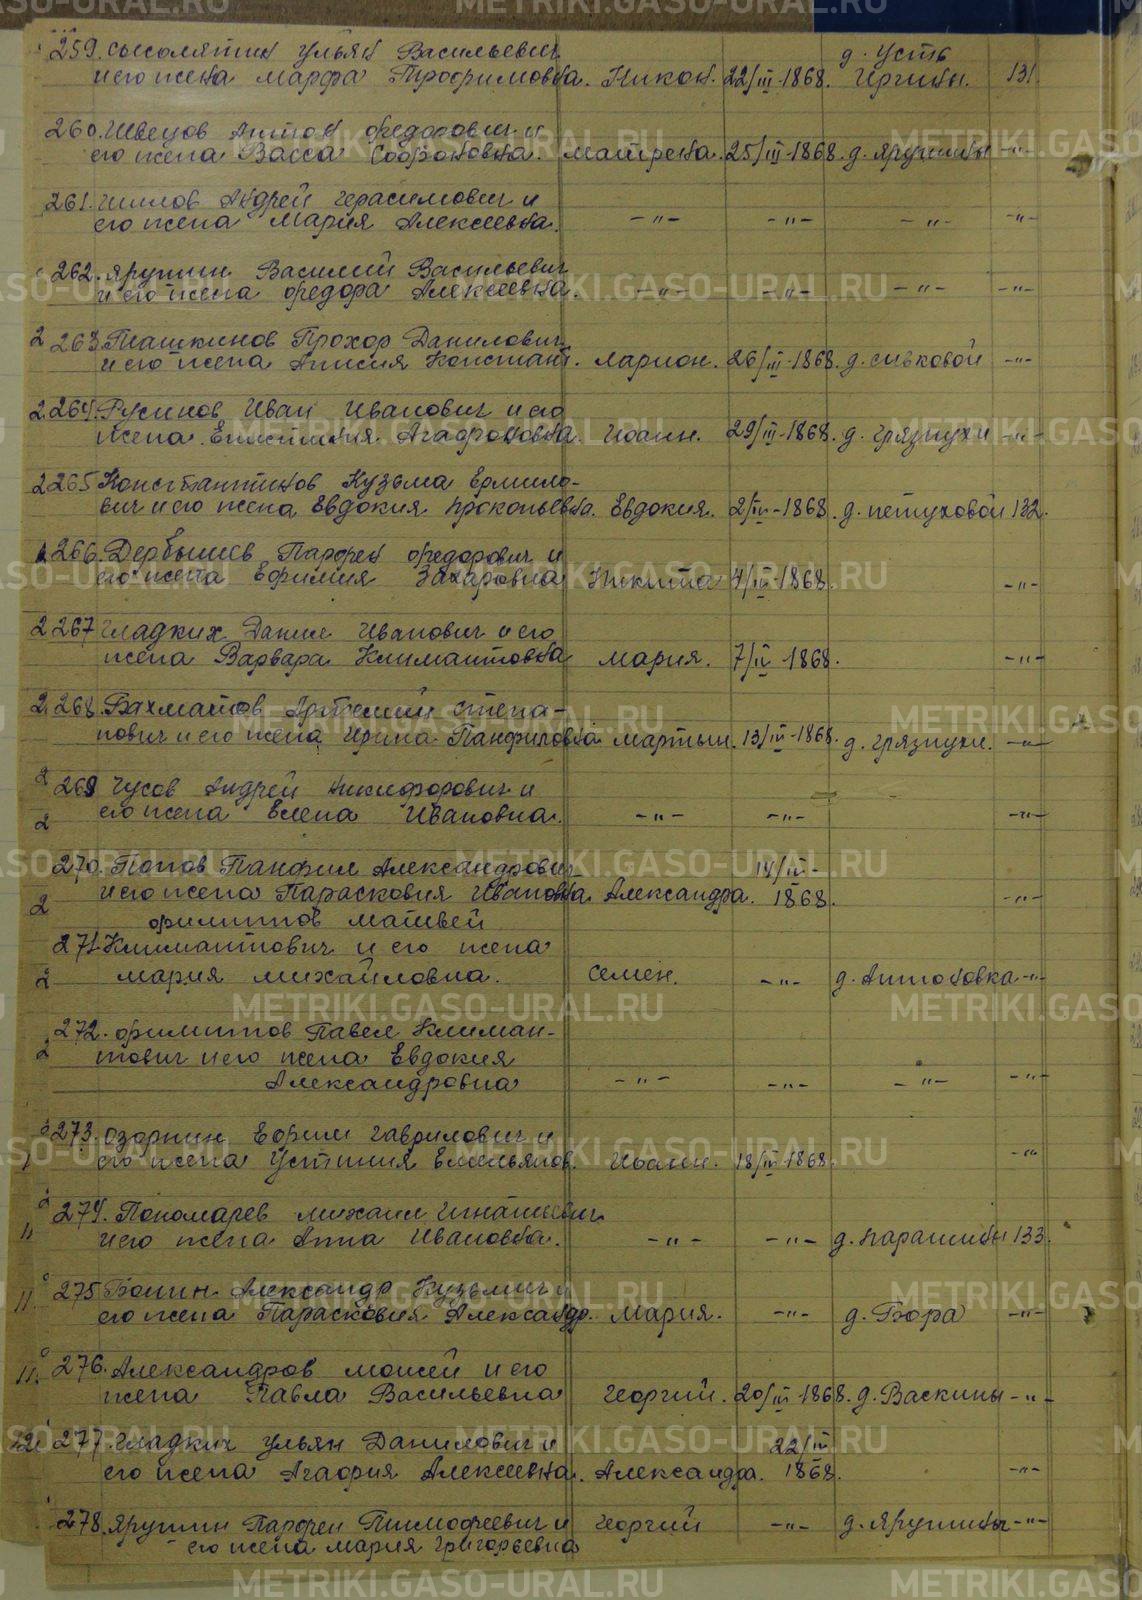 259. Сысолятин Ульян Васильевич д. Усть
и его жена Марфа Трофимовна. Никон. 22/III-1868. Иргины. 131.
260. Швецов Антон Федорович и
его жена Васса Софроновна. Матрена. 25/III-1868. д. Ярушины -"-
261. Чиилов Андрей Герасимович и
его жена Мария Алексеевна. -"- -"- -"- -"-
262. Ярушин Василий Васильевич
и его жена Федора Алексеевна. -"- -"- -"- -"-
2 263. Ташкинов Прохор Данилович
и его жена Анисия Констант. Ларион. 26/III-1868. д. Сивковой -"-
2 264. Русинов Иван Иванович и его
жена Епистимия Агафоновна. Иоанн. 29/III-1868. д. Грязнухи -"-
2 265 Константинов Кузьма Ермило-
вич и его жена Евдокия Прокопьевна. Евдокия. 2/IV-1868. д. Петуховой 132.
266. Дербышев Парфен Федорович и
его жена Ефимия Захаровна Никита 4/IV-1868. -"-
2 267 Гладких Данил Иванович и его
жена Варвара Климантовна Мария. 7/IV 1868. -"-
2 268. Вахматов Артемий Степа-
нович и его жена Ирина Панфиловна Мартын. 13/IV-1868. д. Грязнухи. -"-
2 269 Чусов Андрей Никифорович и
2 его жена Елена Ивановна. -"- -"- -"-
270. Попов Панфил Александрович 14/IV-
2 и его жена Парасковия Ивановна. Александра. 1868. -"-
Филиппов Матвей
271. Климантович и его жена
2 Мария Михайловна. Семен. -"- д. Антоновка -"-
272. Филиппов Павел Климан-
2 тович и его жена Евдокия
Александровна -"- -"- -"- -"-
273. Озорнин Ефим Гаврилович и
его жена Устиния Емельянов. Иоанн. 18/IV-1868. -"-
2 274. Пономарев Михаил Игнатьевич
11 и его жена Анна Ивановна. -"- -"- д. Парашины 133.
275 Бонин Александр Кузьмич и
11. его жена Парасковия Александр. Мария. -"- д. Бора -"-
276. Александров Моисей и его
11. жена Павла Васильевна Георгий. 20/III-1868. д. Васкины -"-
277. Гладкич Ульян Данилович и 22/IV
его жена Агафия Алексеевна. Александра. 1868. -"-
278. Ярушин Парфен Тимофеевич и Георгий -"- д. Ярушины -"-
его жена Мария Григорьевна